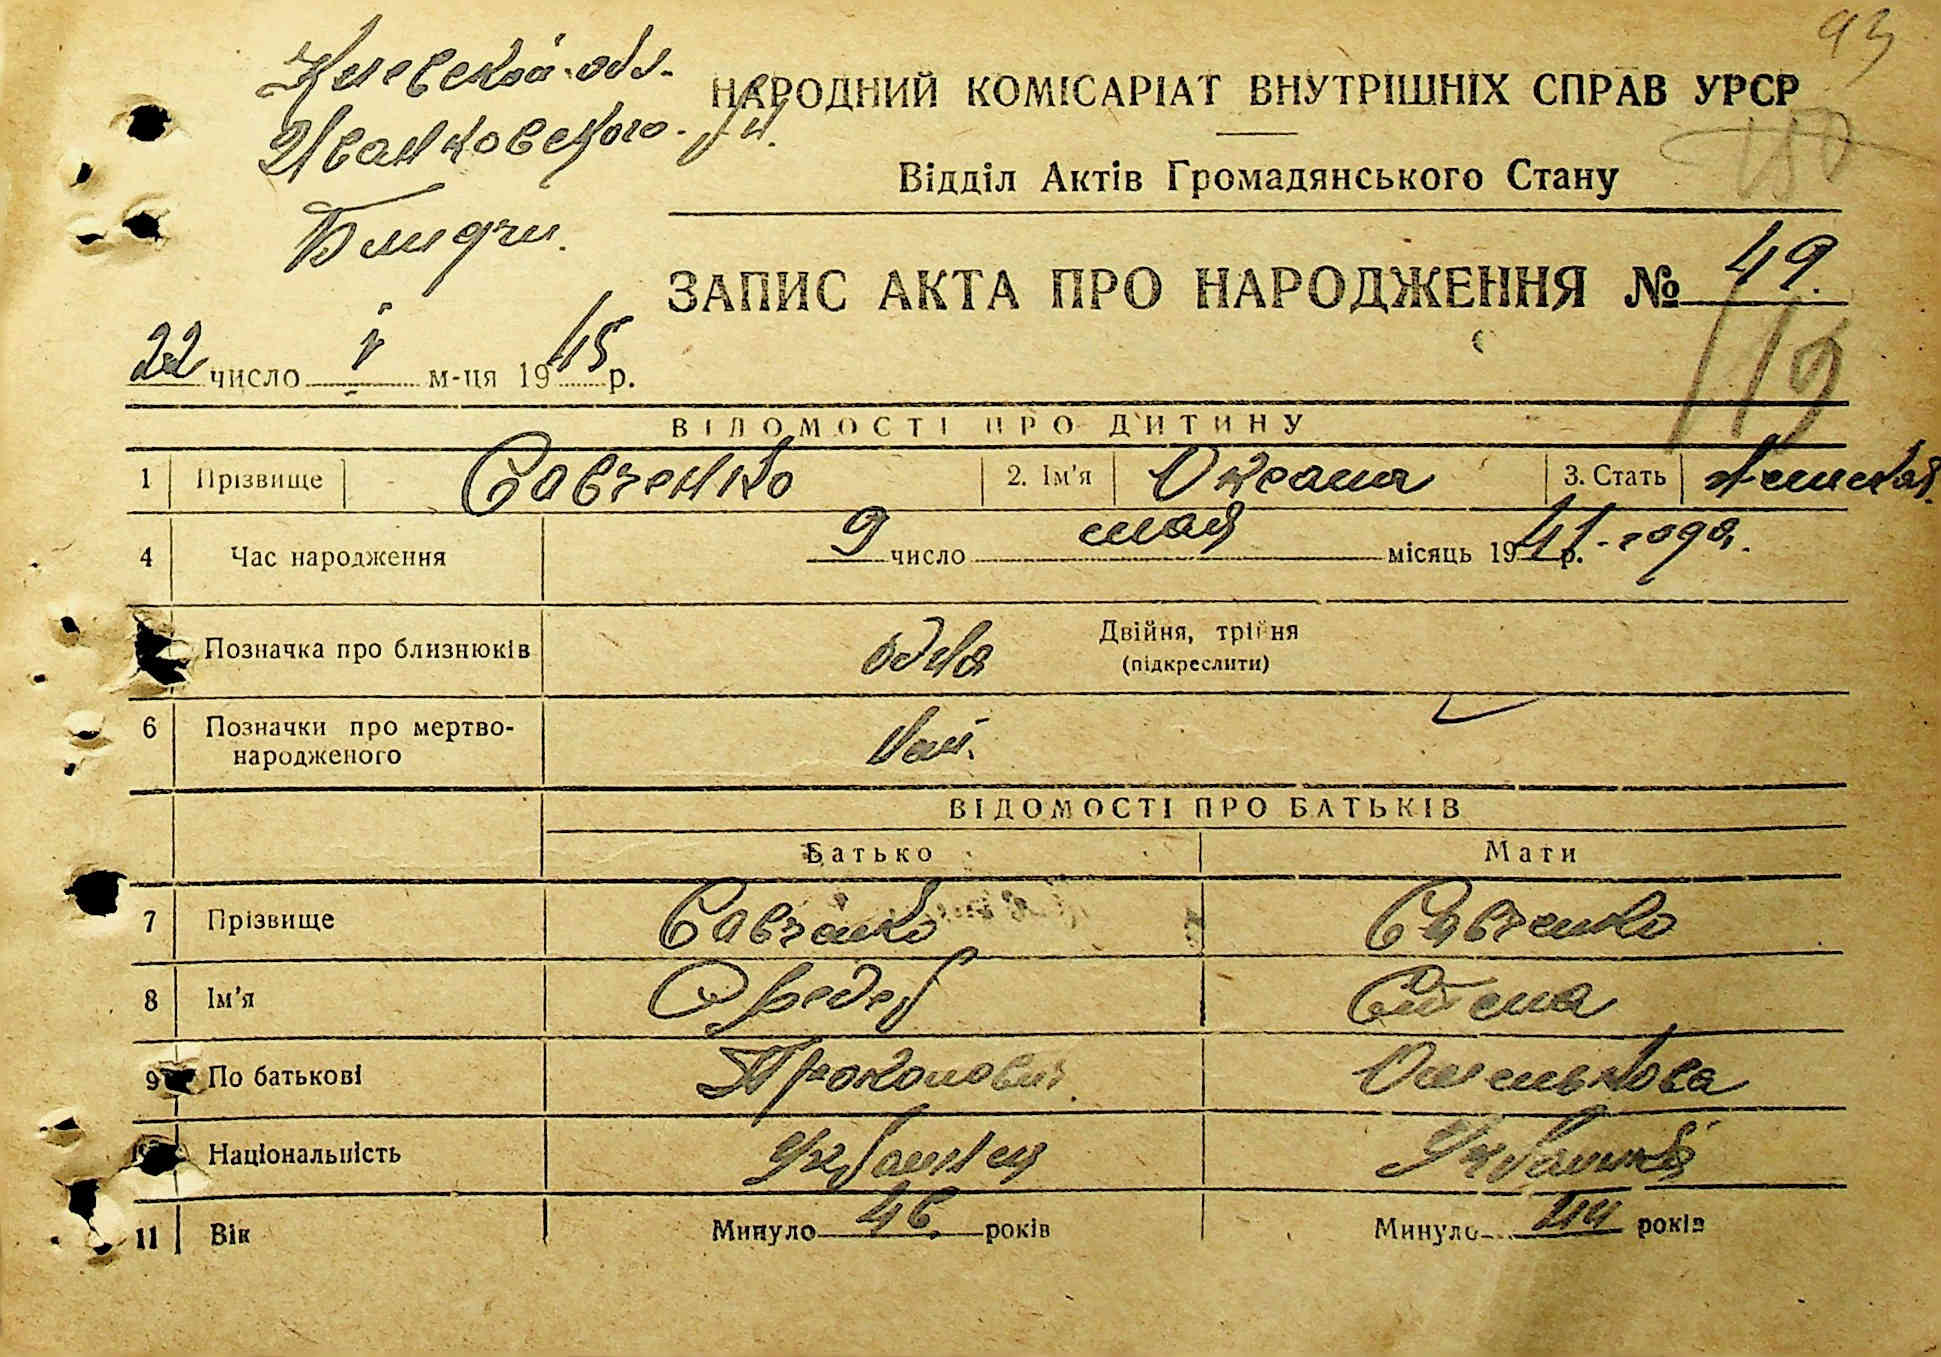 93
Киевской обл.
НАРОДНИЙ КОМІСАРІАТ ВНУТРІШНІХ СПРАВ УРСР
Иванковского р-н.
Відділ Актів Громадянського Стану
Блидчи.
ЗАПИС АКТА ПРО НАРОДЖЕННЯ № 49.
119
22 число І м-ця 1945 р.
ВІДОМОСТІ ПРО ДИТИНУ
1 Прізвище Савченко 2. Ім'я Оксана 3. Стать женская.
4 Час народження 9 число мая місяць 1941 р. года.
Позначка про близнюків одна Двійня, трійня
(підкреслити)
6 Позначки про мертво-
народженого
ВІДОМОСТІ ПРО БАТЬКІВ
Батько Мати
7 Прізвище Савченко Савченко
8 Ім'я Федер
9 По батькові Прокопович Омельковa
Національність Украинец Украинка
11 Вік Минуло 46 років Минуло 44 років